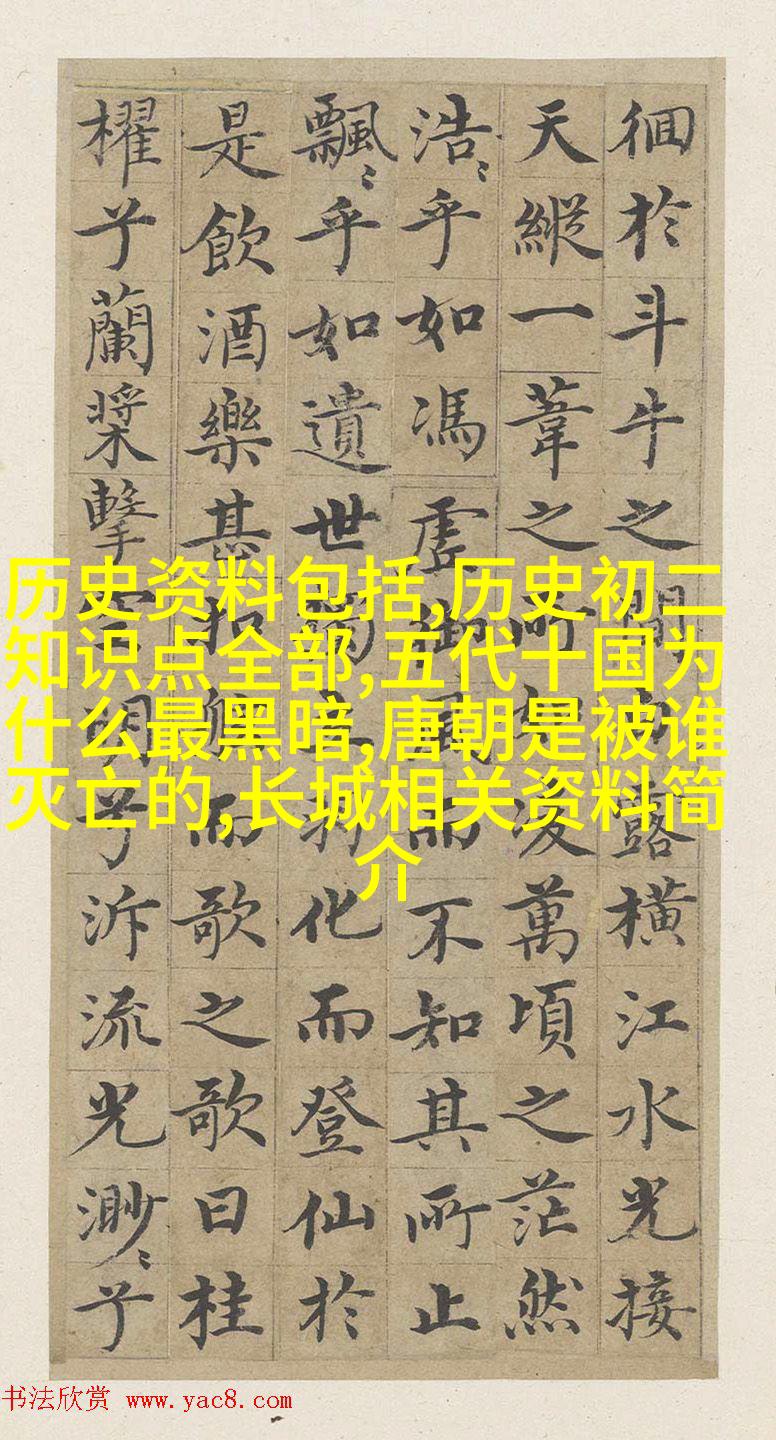 徊於斗牛之間白露橫江水光接
天縱一葦之所如凌萬頃之茫然
浩〻乎如馮虛御風而不知其所止
飄〻乎如遺世獨立羽化而登仙於
是飲酒樂甚扣舷而歌之歌曰桂
櫂兮蘭槳擊空明兮泝流光渺〻兮
历史资料包括,历史初二
知识点全部,五代十国为
什么最黑暗,唐朝是被谁
灭亡的,长城相关资料简
介
书法欣赏 www.yac8.com